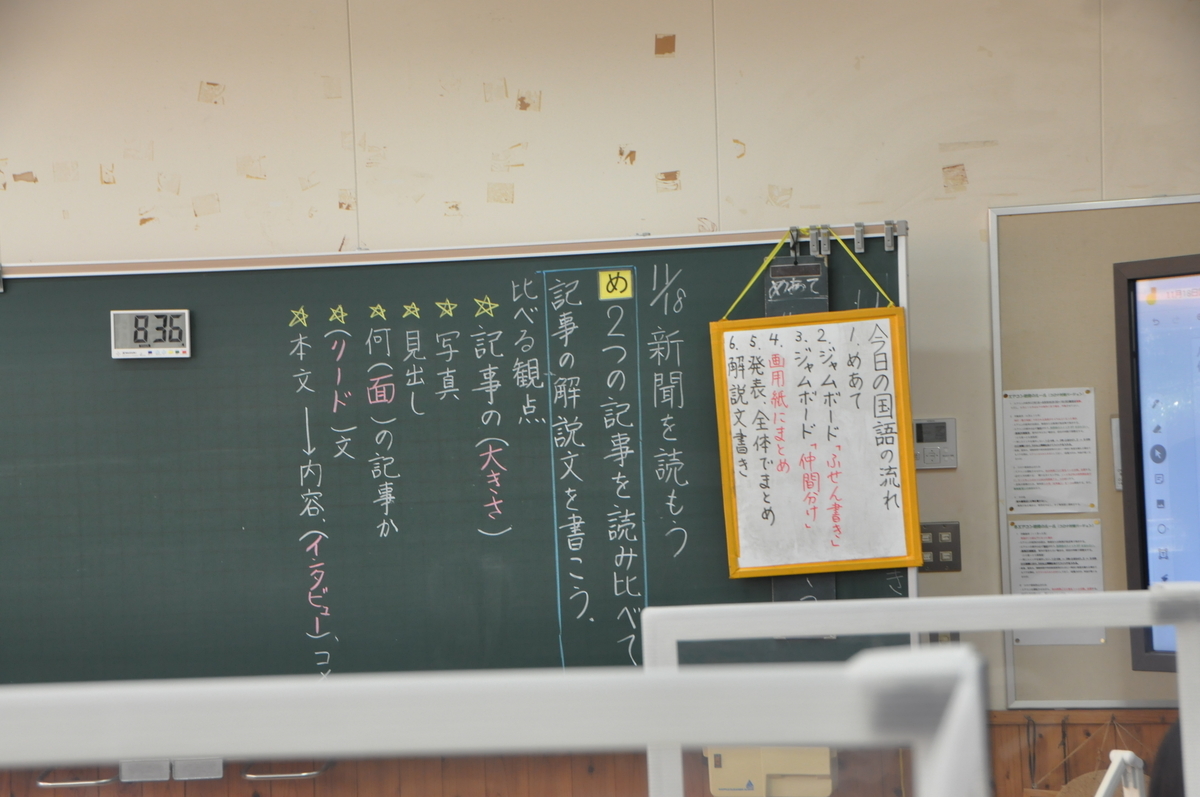 今日の国語の流れ
1. めあて
2. ジャムボード「ふせん書き」
3. ジャムボード「仲間分け」
4. 画用紙にまとめ
5. 発表、全体でまとめ
6. 解説文書き
めあて
11/18 新聞を読もう
め 2つの記事を読み比べて
記事の解説文を書こう.
比べる観点
☆ 記事の(大きさ)
☆ 写真
☆ 見出し
☆ 何(面)の記事か
☆ (リード)文
☆ 本文→内容、(インタビュー)、コメ
8:36